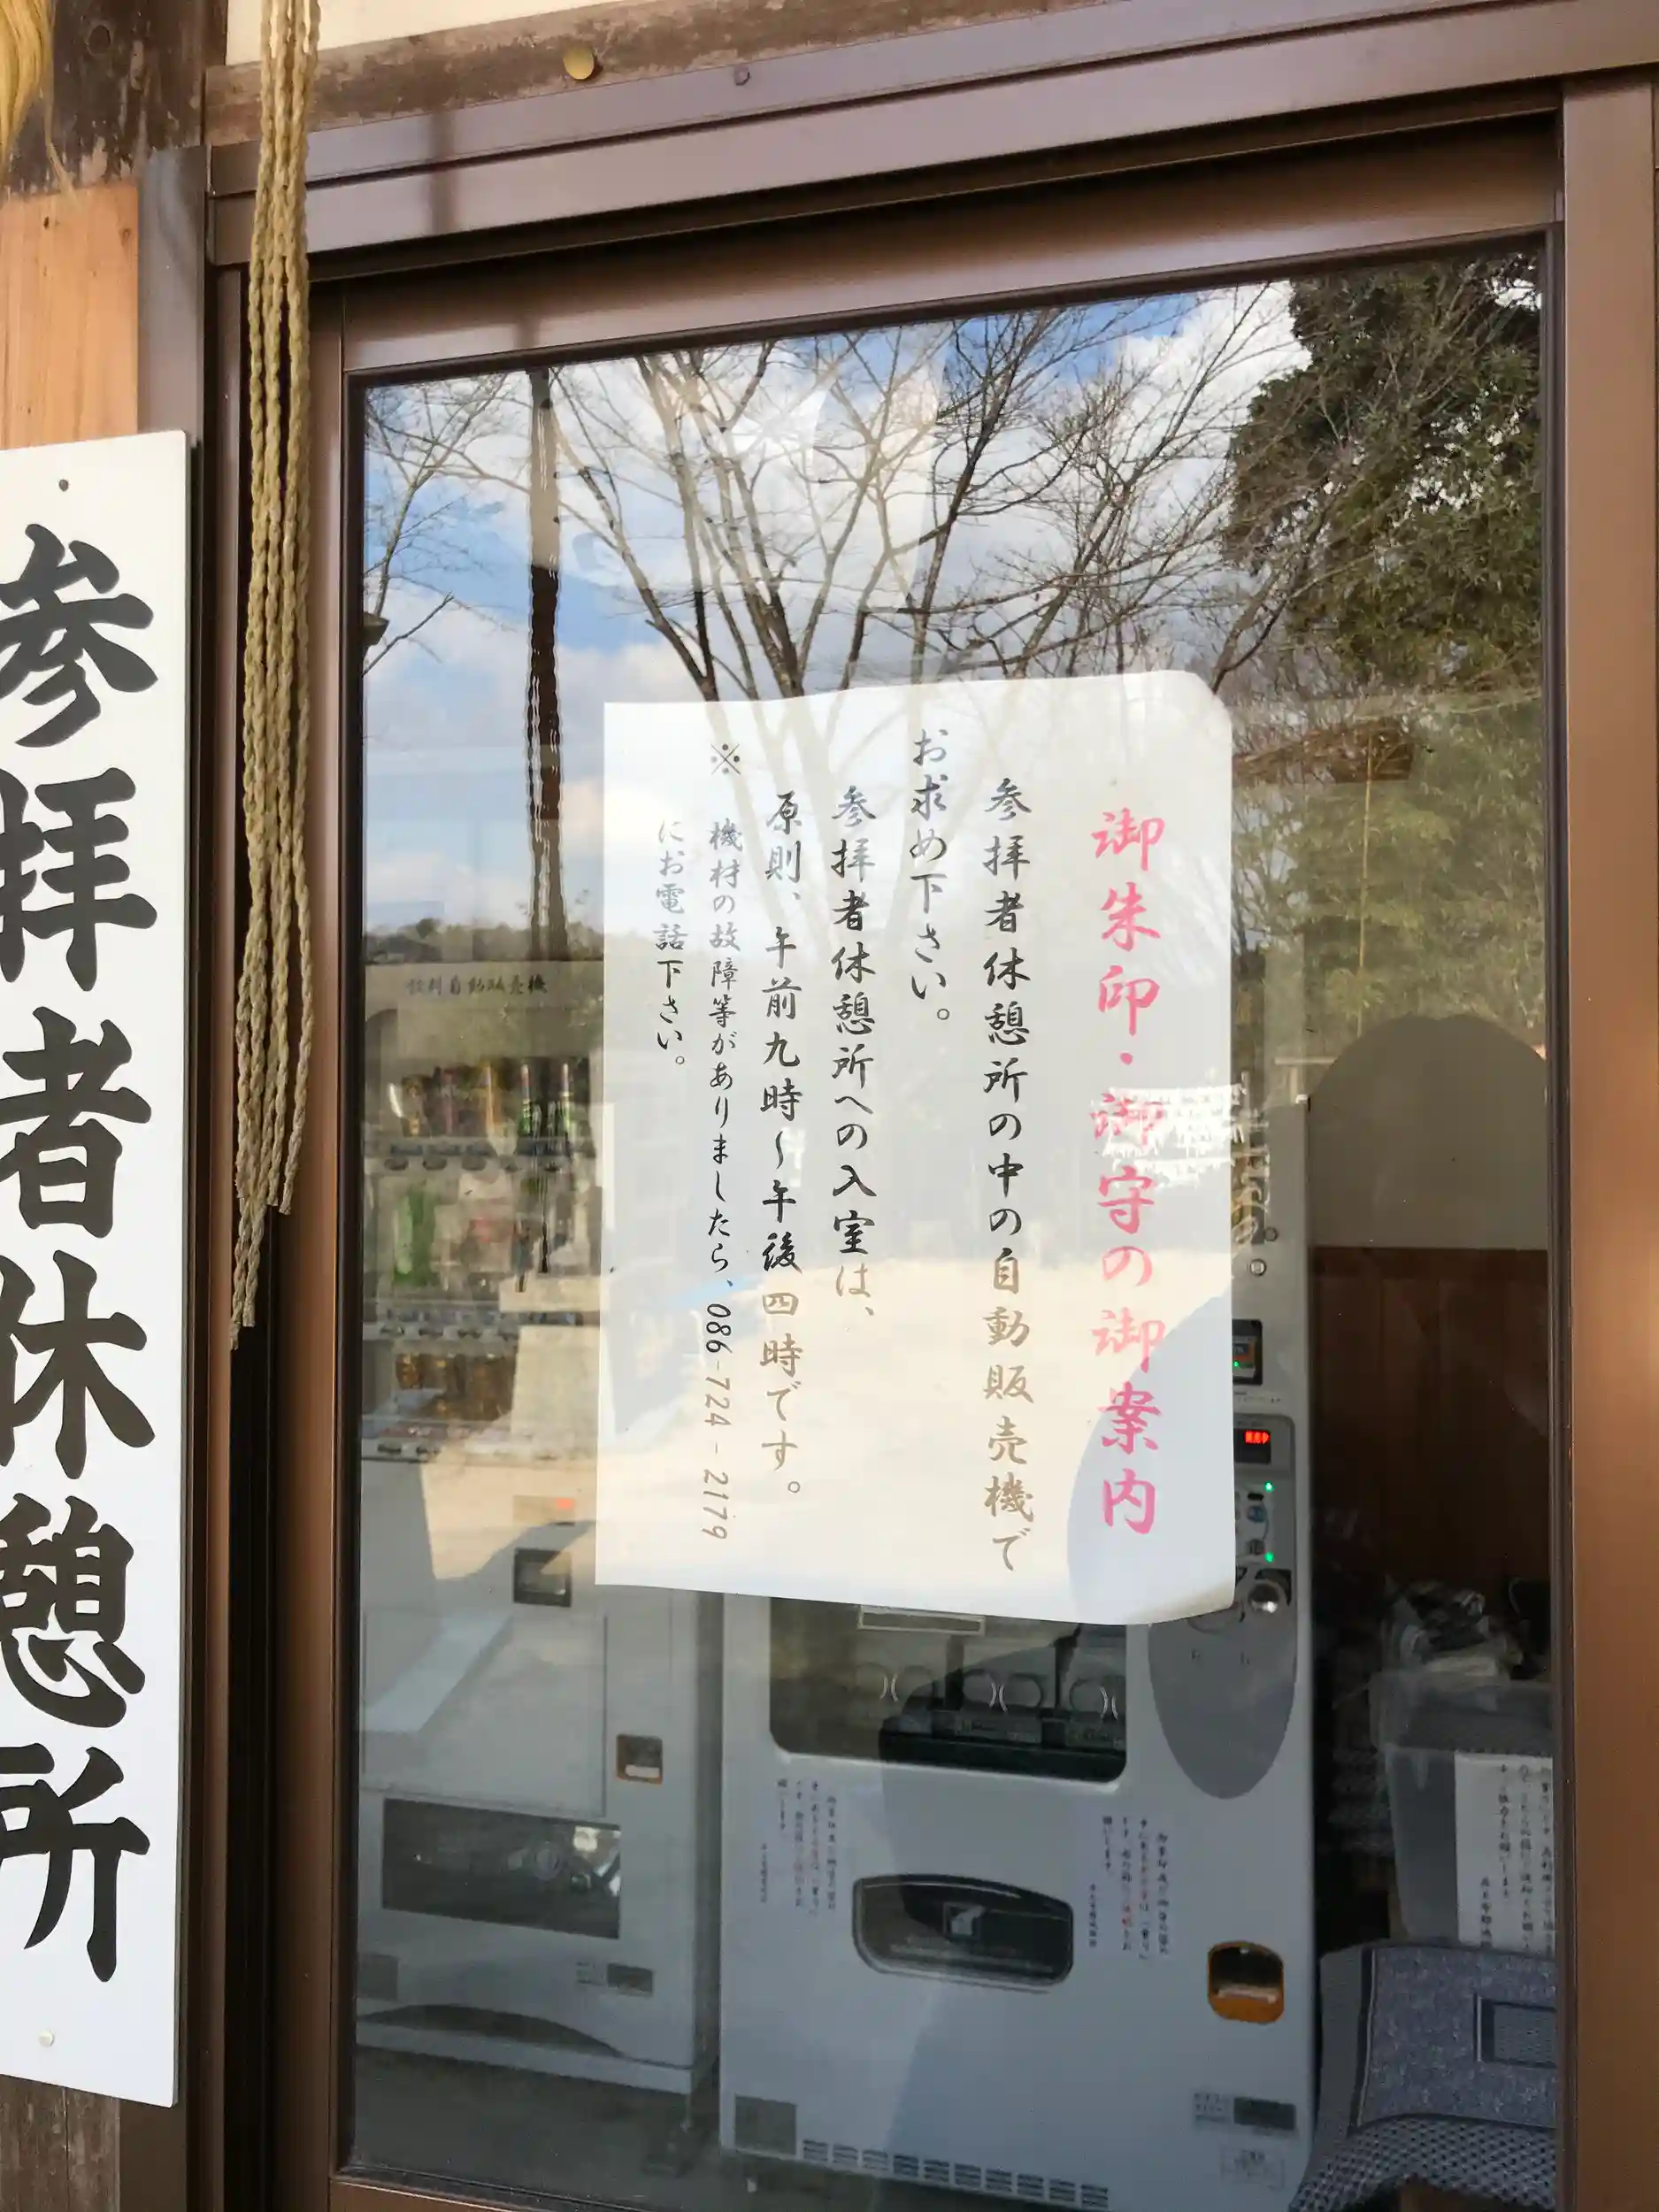 参拝者休憩所
御朱印・御守の御案内
参拝者休憩所の中の自動販売機で
お求め下さい。
参拝者休憩所への入室は、
原則、午前九時~午後四時です。
※ 機材の故障等がありましたら、086-724-2179
にお電話下さい。
飲料自動販売機